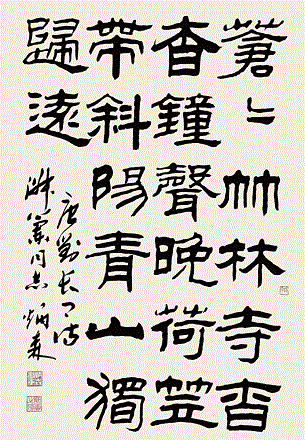 蒼〻竹林寺杳
杳鐘聲晚荷笠
帶斜陽青山獨
歸遠
唐劉長卿詩
同志 炳森